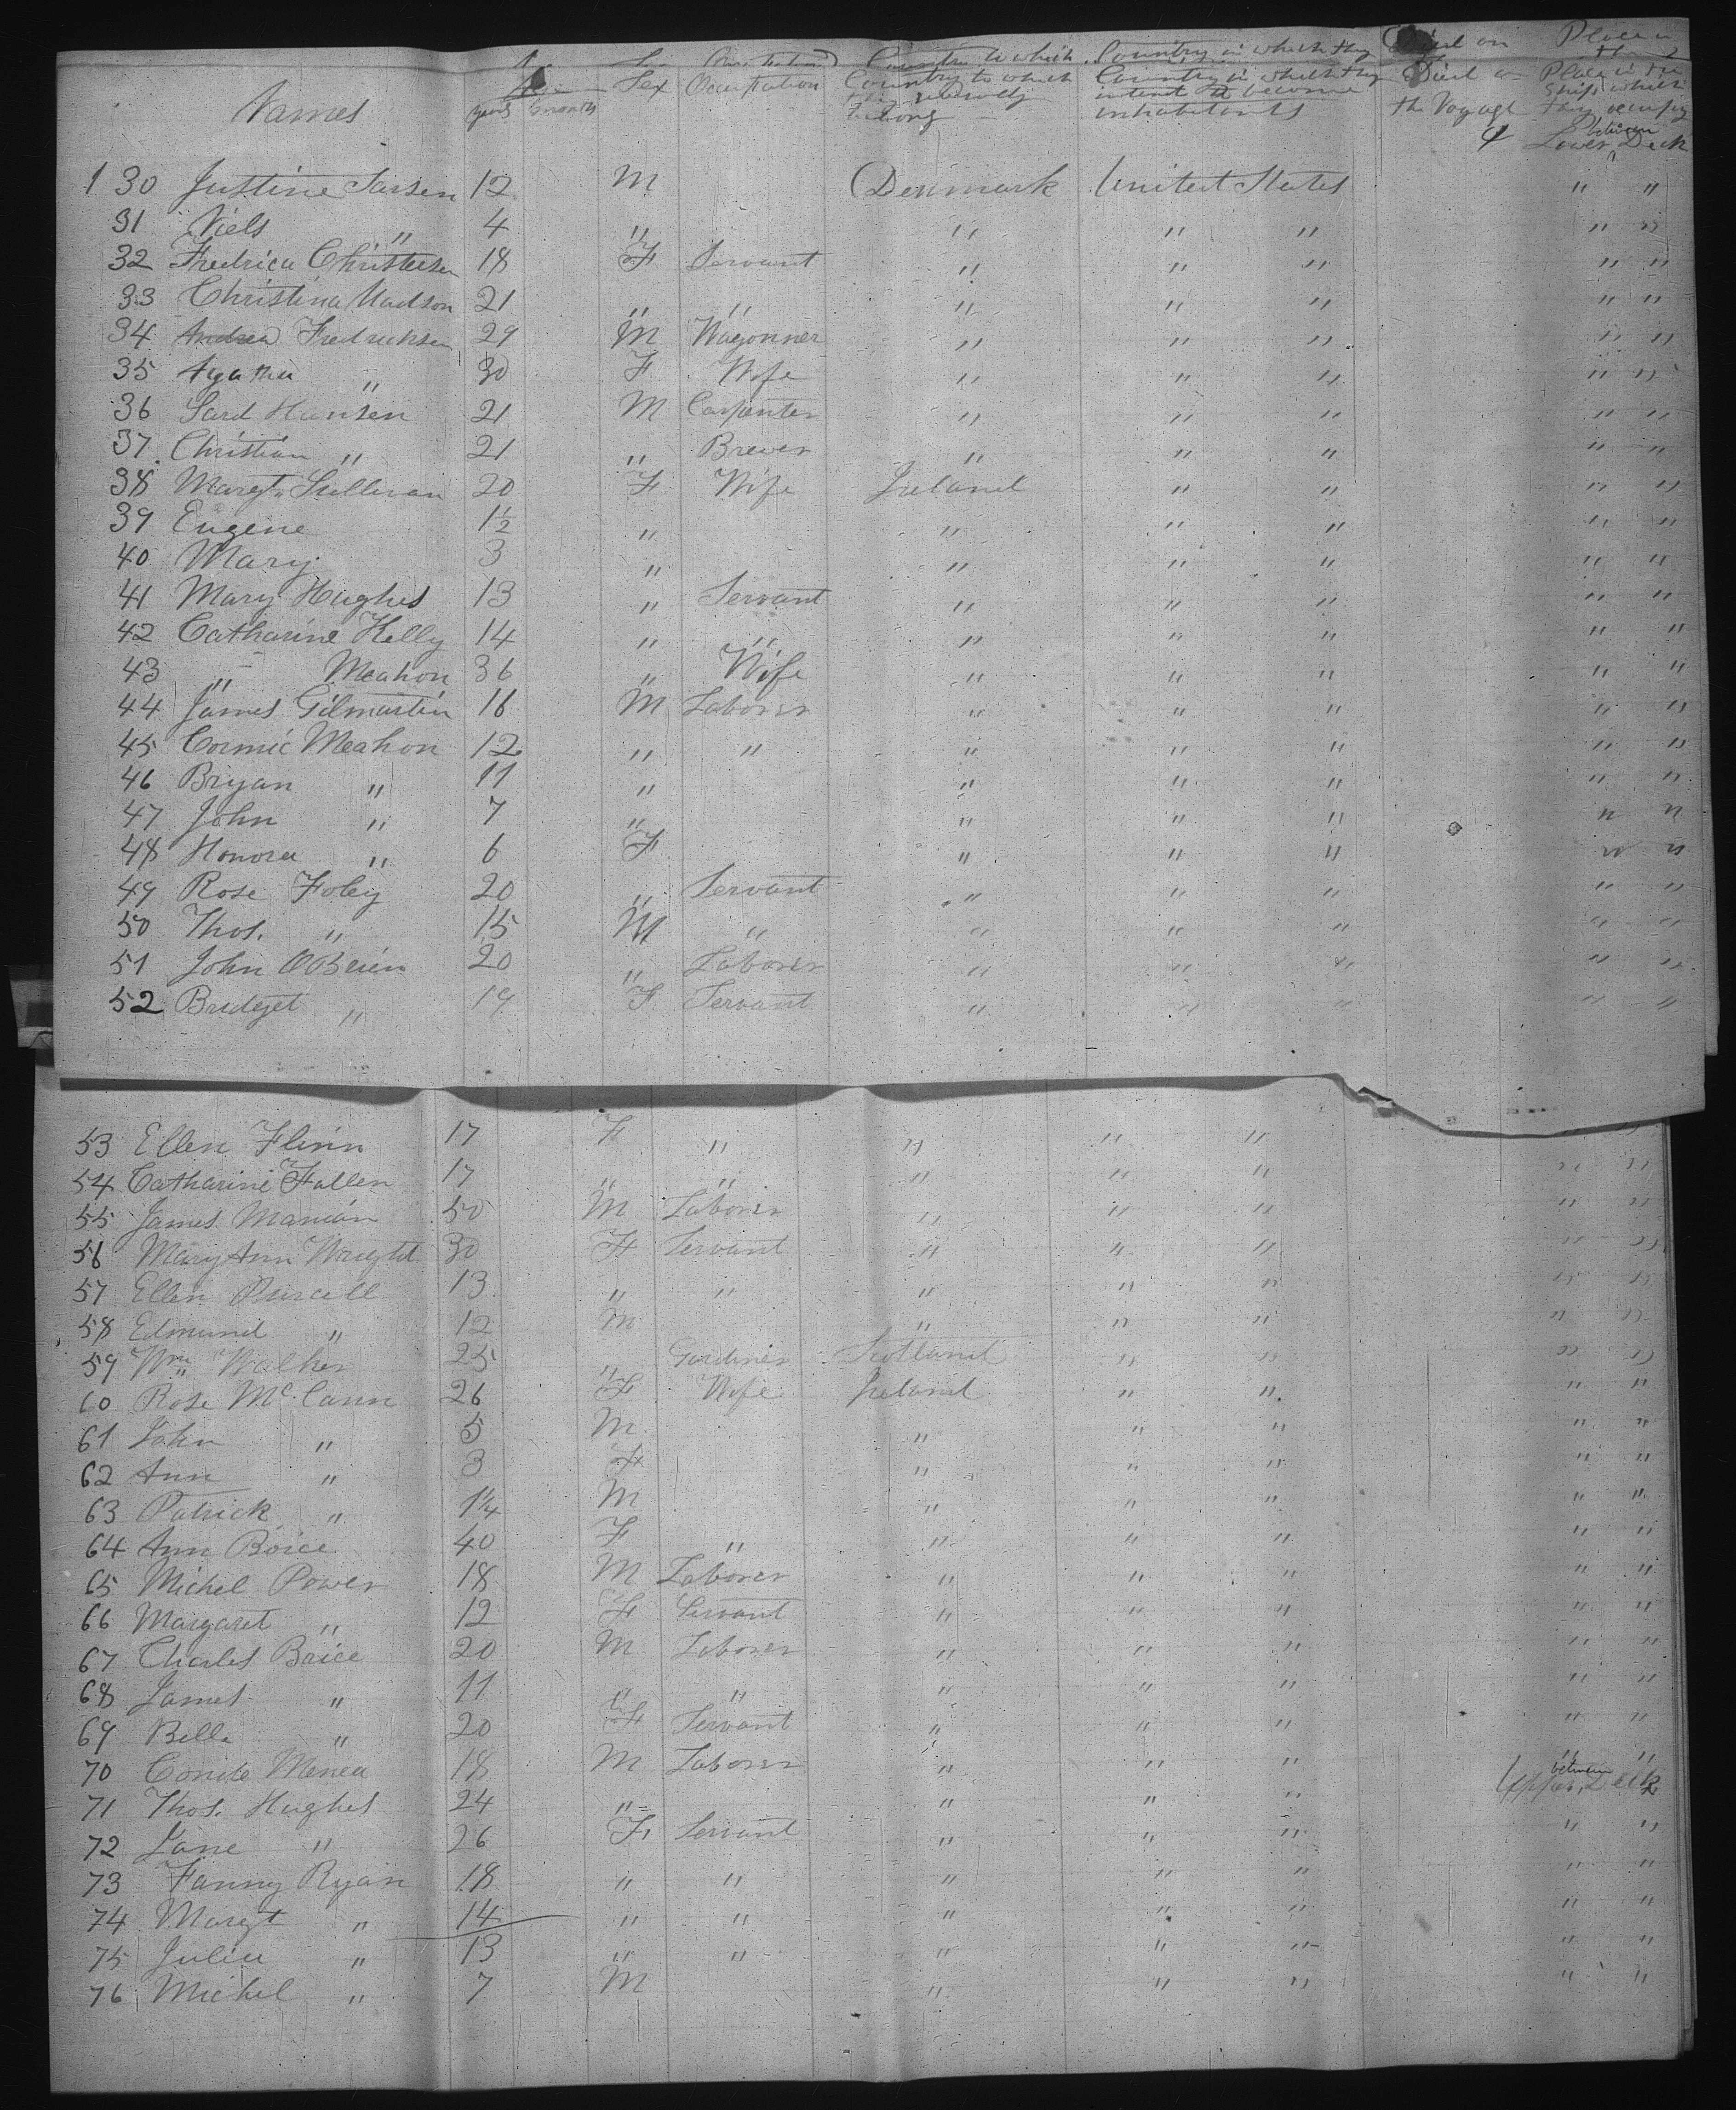 Names years months Sex Occupation Country to which they severally belong Country in which they intend to become inhabitants Died on the Voyage Place in the Ship which they occupy
Lower between Deck
130 Justine Larsen 12 M Denmark United States " "
31 Niels " 4 " " " " " "
32 Fredrica Christersen 18 F Servant " " " " "
33 Christina Madson 21 " " " " " " "
34 Andrea Fredricksen 29 M Wagonner " " " " "
35 Agatha " 30 F Wife " " " " "
36 Lard Hansen 21 M Carpenter " " " " "
37 Christian " 21 " Brewer " " " " "
38 Margt. Sullivan 20 F Wife Ireland " " " "
39 Eugene 1½ " " " " " "
40 Mary 3 " " " " " "
41 Mary Hughes 13 " Servant " " " " "
42 Catharine Kelly 14 " " " " " " "
43 " Meahon 36 " Wife " " " " "
44 James Gilmartin 16 M Laborer " " " " "
45 Cormic Meahon 12 " " " " " " "
46 Bryan " 11 " " " " " "
47 John " 7 " " " " " "
48 Honora " 6 F " " " " "
49 Rose Foley 20 " Servant " " " " "
50 Thos. " 15 M " " " " " "
51 John OBrien 20 " Laborer " " " " "
52 Bridget " 19 F Servant " " " " "
53 Ellen Flinn 17 F " " " " " "
54 Catharine Fallen 17 " " " " " " "
55 James Manian 50 M Laborer " " " " "
56 Mary Ann Wright 30 F Servant " " " " "
57 Ellen Purcell 13 " " " " " " "
58 Edmund " 12 M " " " " "
59 Wm Walker 25 " Gardiner Scotland " " " "
60 Rose Mc Cann 26 F Wife Ireland " " " "
61 John " 5 M " " " " "
62 Ann " 3 F " " " " "
63 Patrick " 1¼ M " " " " "
64 Ann Boice 40 F " " " " " "
65 Michel Power 18 M Laborer " " " " "
66 Margaret " 12 F Servant " " " " "
67 Charles Brice 20 M Laborer " " " " "
68 James " 11 " " " " " " "
69 Bella " 20 F Servant " " " " "
70 Menea 18 M Laborer " " " " "
71 Thos. Hughes 24 " " " " Upper between Deck
72 Jane " 26 F Servant " " " " "
73 Fanny Ryan 18 " " " " " " "
74 Margt " 14 " " " " " " "
75 Julia " 13 " " " " " " "
76 Michel " 7 M " " " " "